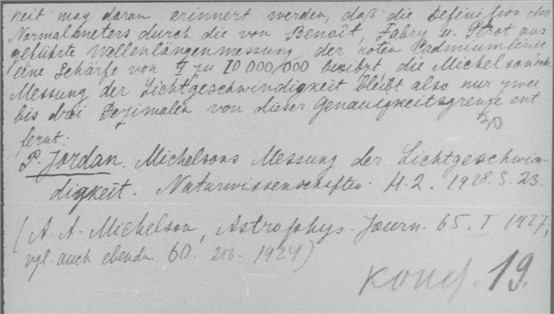 keit mag daran erinnert werden, daß die Definition des
Normalmeters durch die von Benoît, Fabry u. Perot aus
geführte Wellenlängenmessung der roten Cadmiumlinie
eine Schärfe von 1 zu 10 000 000 besitzt, die Michelsonsche
Messung der Lichtgeschwindigkeit bleibt also nur zwei
bis drei Dezimalen von dieser Genauigkeitsgrenze ent
fernt:
30
P. Jordan. Michelsons Messung der Lichtgeschwin-
digkeit. Naturwissenschaften. H. 2. 1928. S. 23.
(A. A. Michelson, Astrophys. Journ. 65. I 1927,
vgl. auch ebenda 60. 256. 1924)
19.